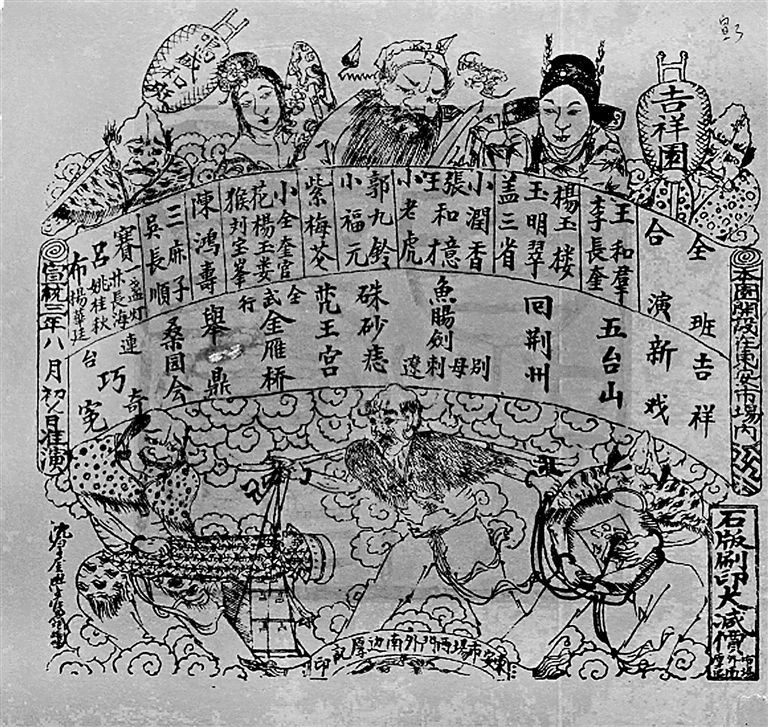 吉祥園
鳴盛和班
本園開設在東安市場內
全班吉祥
合演新戏
王和羣
李長奎
五台山
楊玉楼
王明翠
盖三省
回荆州
小潤香
張和才
小老虎
魚腸劍
別母
刺遼
郭九鈴
小福元
硃砂痣
紫梅苓
茫王宮
小全奎官
花楊玉娄
猴刘宝峯
全武行
金雁桥
陳鴻壽
舉鼎
三麻子
吳長順
桑园会
賽一盏灯
林長海
姚桂秋
吕布
楊華廷
連台
奇巧寃
宣統三年八月初八日准演
石版刷印大減價
東安市場西門外南边厚記印